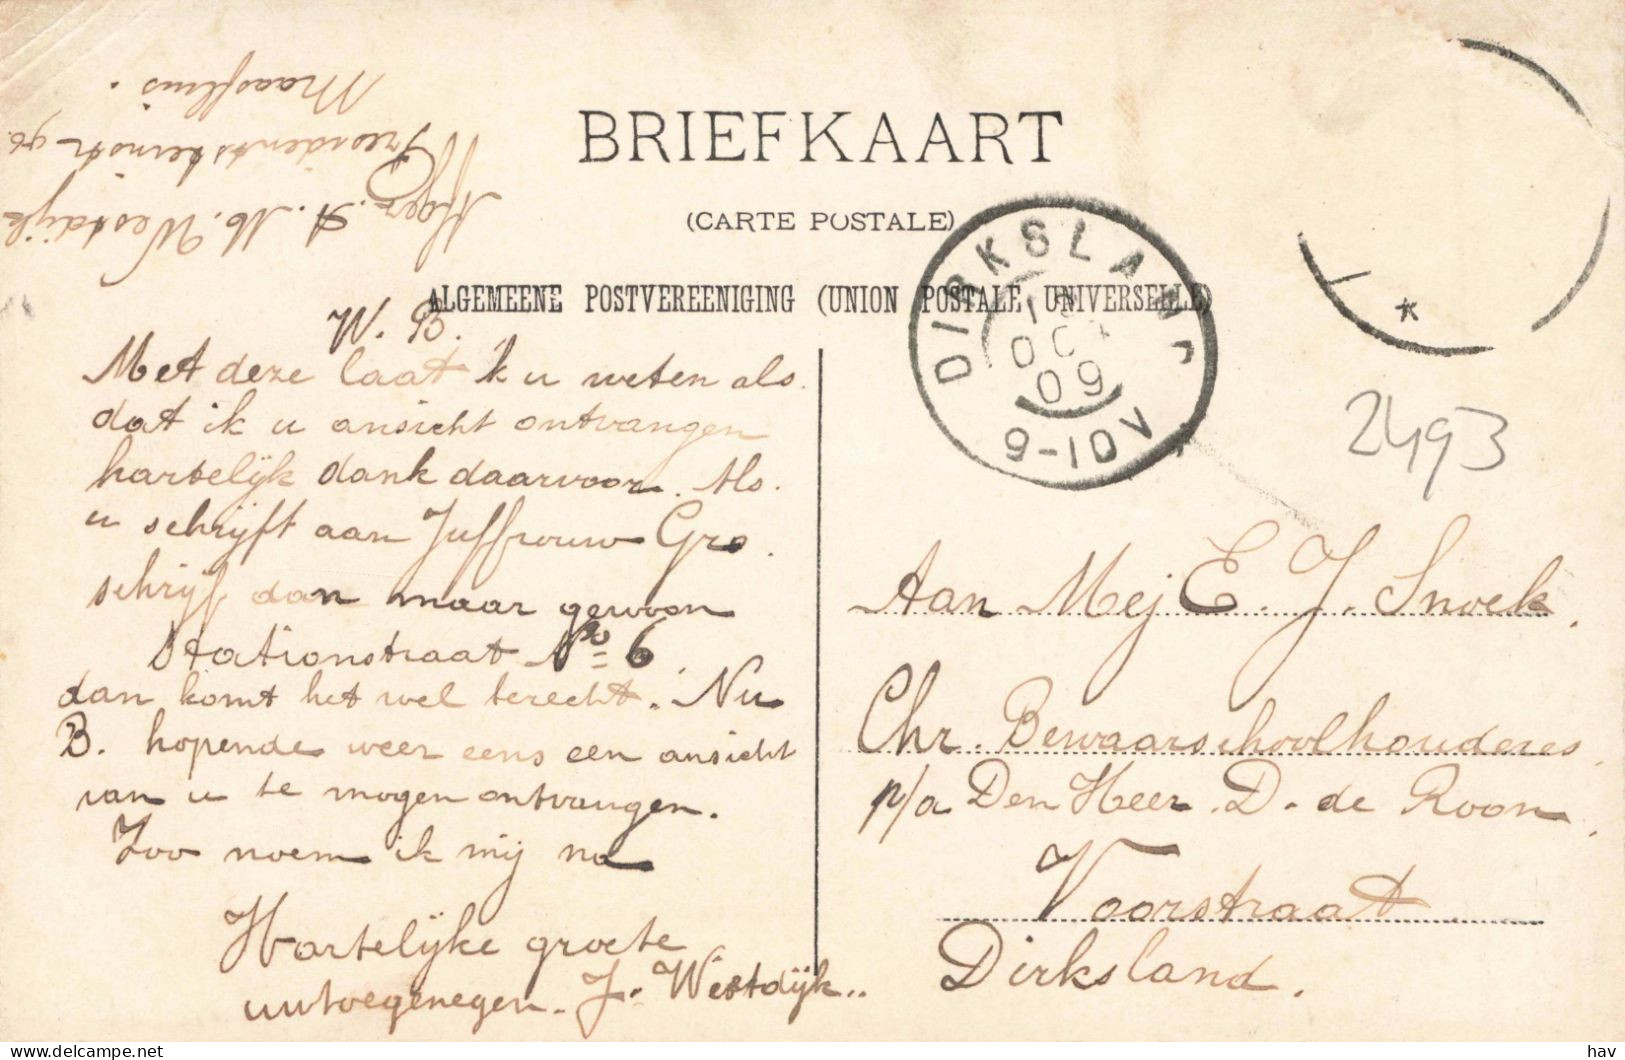 BRIEFKAART
(CARTE POSTALE)
ALGEMEENE POSTVEREENIGING (UNION POSTALE UNIVERSELLE)
DIRKSLAND
OCT
09
9-10V
*
2493
A. M. Westdijk
90.
Maassluis.
W. B.
Met deze laat 'k u weten als
dat ik u ansicht ontvangen
hartelijk dank daarvoor. Als
u schrijft aan Juffrouw Gro.
schrijf dan maar gewoon
Stationstraat No 6
dan komt het wel terecht. Nu
B. hopende weer eens een ansicht
van u te mogen ontvangen.
Zoo noem ik mij na
Hartelijke groete
uwtoegenegen. J. Westdijk..
Aan Mej E. J. Snoek.
Chr. Bewaarschoolhouderes
p/a Den Heer. D. de Roon.
Voorstraat
Dirksland.
hav